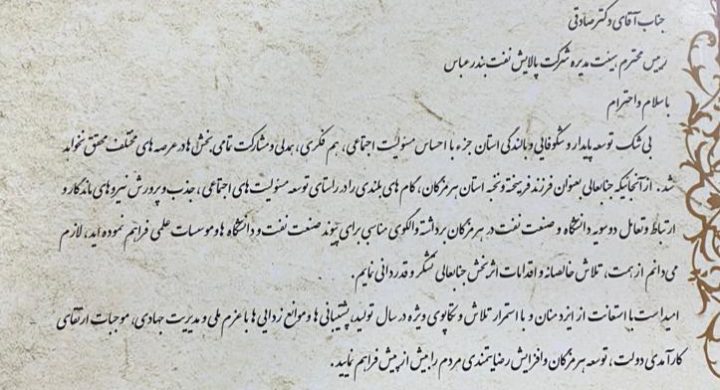 جناب آقای دکتر صادقی
رییس محترم هیئت مدیره شرکت پالایش نفت بندرعباس
با سلام و احترام
بی شک توسعه پایدار و شکوفایی و بالندگی استان جزء با احساس مسئولیت اجتماعی، هم فکری، همدلی و مشارکت تمامی بخش ها در عرصه های مختلف محقق نخواهد
شد. از آنجائیکه جنابعالی بعنوان فرزند فرهیخته و نخبه استان هرمزگان، گام های بلندی را در راستای توسعه مسئولیت های اجتماعی، جذب و پرورش نیروهای ماندگار و
ارتباط و تعامل دوسویه دانشگاه و صنعت نفت در هرمزگان برداشته و الگوی مناسبی برای پیوند صنعت نفت و دانشگاه ها و موسسات علمی فراهم نموده اید، لازم
می دانم از همت، تلاش خالصانه و اقدامات اثربخش جنابعالی تشکر و قدردانی نمایم.
امید است با استعانت از ایزد منان و با استمرار تلاش و تکاپوی ویژه در سال تولید، پشتیبانی ها و مانع زدایی ها با عزم ملی و مدیریت جهادی، موجبات ارتقای
کارآمدی دولت، توسعه هرمزگان و افزایش رضایتمندی مردم را بیش از پیش فراهم نمایید.